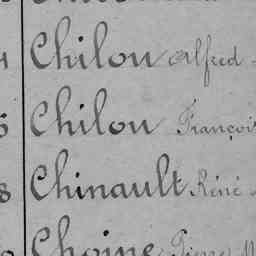 Chilou Alfred
Chilou François
8 Chinault Réné
Choine Pierre